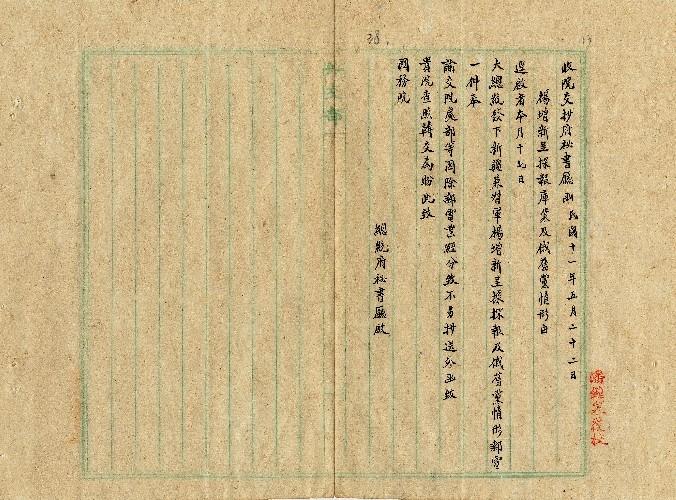 收院交抄府秘書廳函 民國十一年五月二十二日
楊增新呈探報庫黨及俄舊黨情形由
逕啟者本月十七日
大總統發下新疆兼督軍楊增新呈據探報及俄舊黨情形郵電
一件奉
諭交院處部等因除郵電業經分致不另抄送分函外
貴院查照轉交為盼此致
國務院
總統府秘書廳啟
38
13